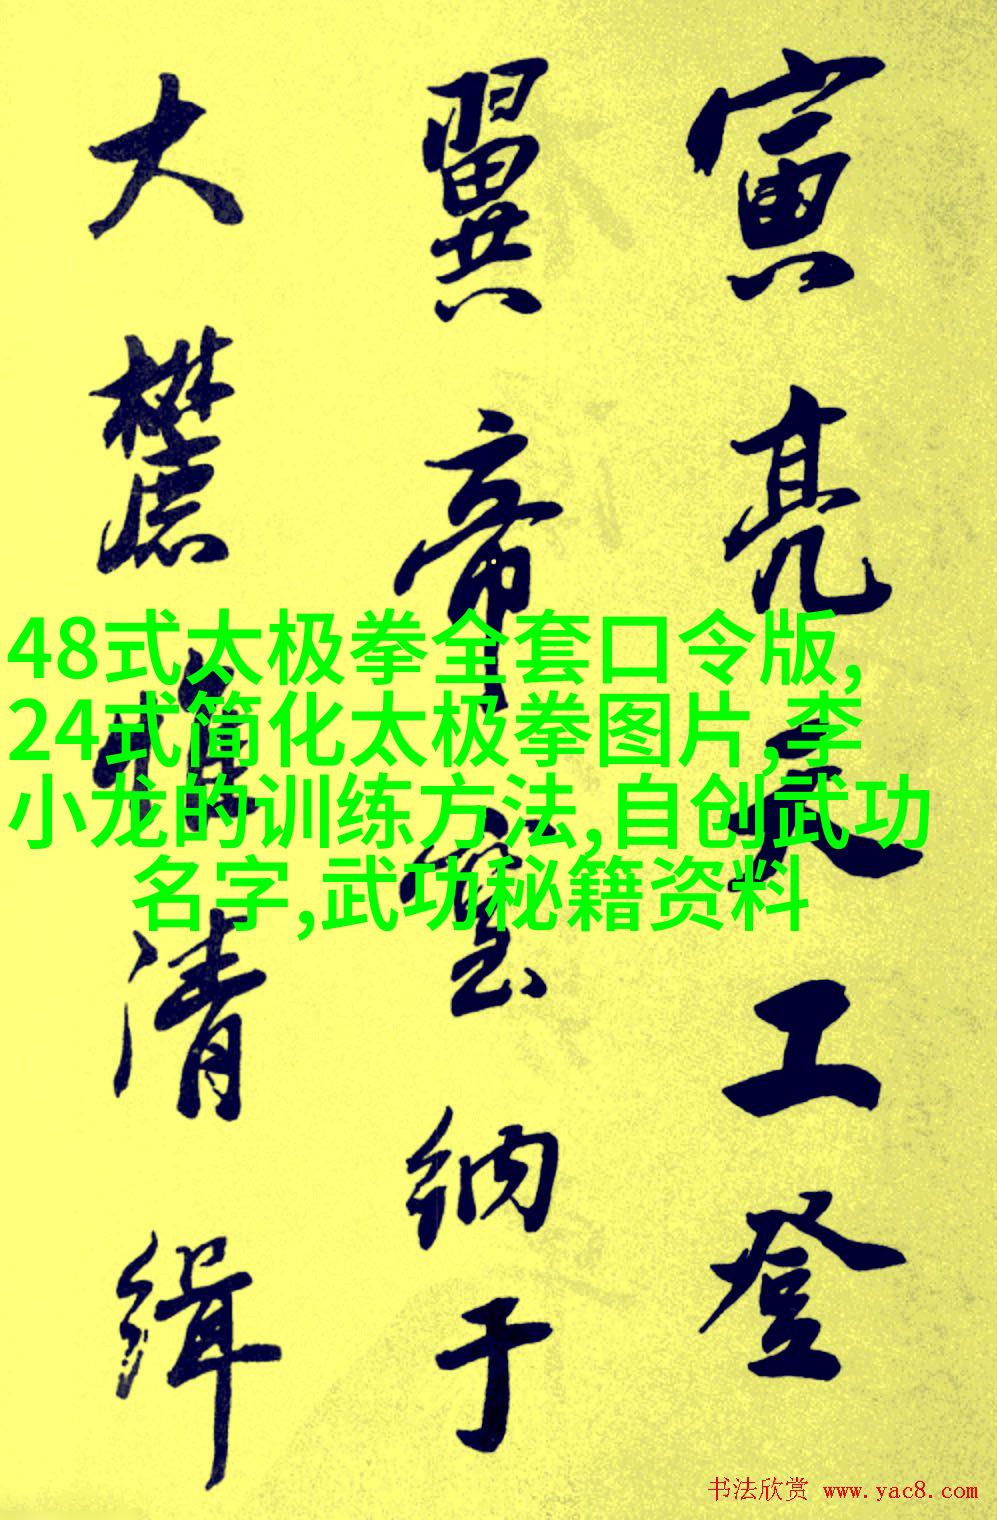 寅亮天工登
翼帝室纳于
大麓惟清缉
48式太极拳全套口令版,
24式简化太极拳图片,李
小龙的训练方法,自创武功
名字,武功秘籍资料
书法欣赏 www.yac8.com